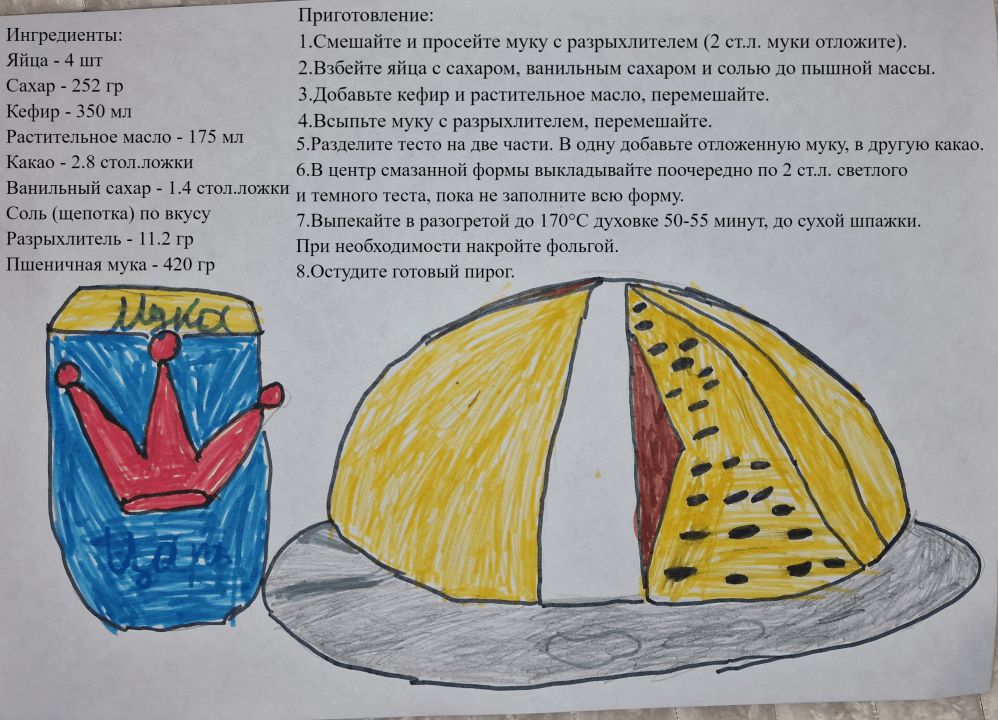 Ингредиенты:
Яйца - 4 шт
Сахар - 252 гр
Кефир - 350 мл
Растительное масло - 175 мл
Какао - 2.8 стол.ложки
Ванильный сахар - 1.4 стол.ложки
Соль (щепотка) по вкусу
Разрыхлитель - 11.2 гр
Пшеничная мука - 420 гр
Приготовление:
1.Смешайте и просейте муку с разрыхлителем (2 ст.л. муки отложите).
2.Взбейте яйца с сахаром, ванильным сахаром и солью до пышной массы.
3.Добавьте кефир и растительное масло, перемешайте.
4.Всыпьте муку с разрыхлителем, перемешайте.
5.Разделите тесто на две части. В одну добавьте отложенную муку, в другую какао.
6.В центр смазанной формы выкладывайте поочередно по 2 ст.л. светлого
и темного теста, пока не заполните всю форму.
7.Выпекайте в разогретой до 170°С духовке 50-55 минут, до сухой шпажки.
При необходимости накройте фольгой.
8.Остудите готовый пирог.
Мука
Царь